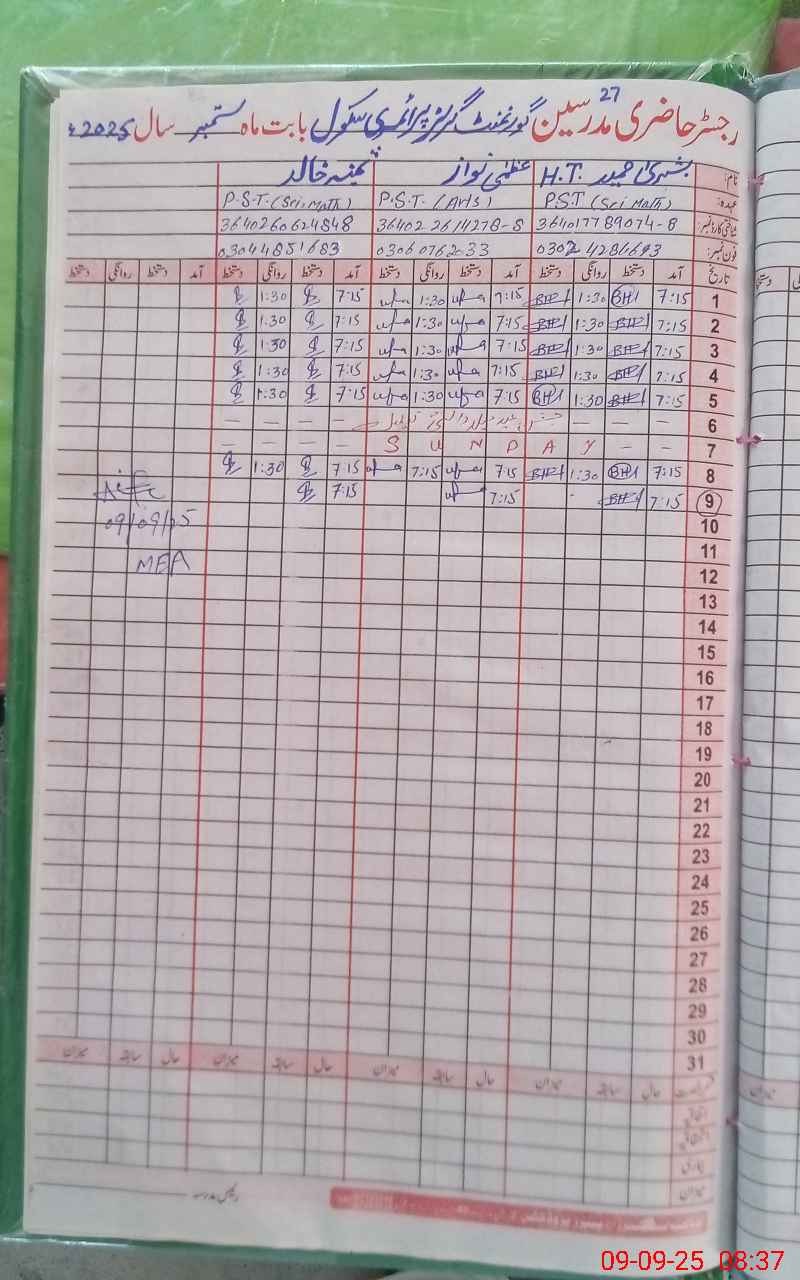 27
رجسٹر حاضری مدرسین گورنمنٹ گرلز پرائمری سکول بابت ماہ ستمبر سال 2025ء
نام: بشریٰ حمید H.T. عظمیٰ نواز ثمینہ خالد
عہدہ: P.S.T (Sci Math) P.S.T. (AHS) P.S.T. (Sci. Math)
شناختی کارڈ نمبر: 364017789074-8 36402 2614278-8 3640260624848
فون نمبر: 0302 4281693 0306 0762033 03044851683
تاریخ آمد دستخط روانگی دستخط آمد دستخط روانگی دستخط آمد دستخط روانگی دستخط آمد دستخط روانگی دستخط
1 7:15 BH 1:30 BH 7:15 1:30 7:15 1:30
2 7:15 BH 1:30 BH 7:15 1:30 7:15 1:30
3 7:15 BH 1:30 BH 7:15 1:30 7:15 1:30
4 7:15 BH 1:30 BH 7:15 1:30 7:15 1:30
5 7:15 BH 1:30 BH 7:15 1:30 7:15 1:30
6 — — — — — —
7 — — S U N D A Y — — — —
8 7:15 BH 1:30 BH 7:15 7:15 7:15 1:30
9 7:15 BH 7:15 7:15
09/09/25
10
11
MEA
12
13
14
15
16
17
18
19
20
21
22
23
24
25
26
27
28
29
30
31
حال سابقہ میزان حال سابقہ میزان حال سابقہ میزان حال سابقہ میزان
اتفاقیہ
بیماری
میزان
رئیس مدرسہ
09-09-25 08:37